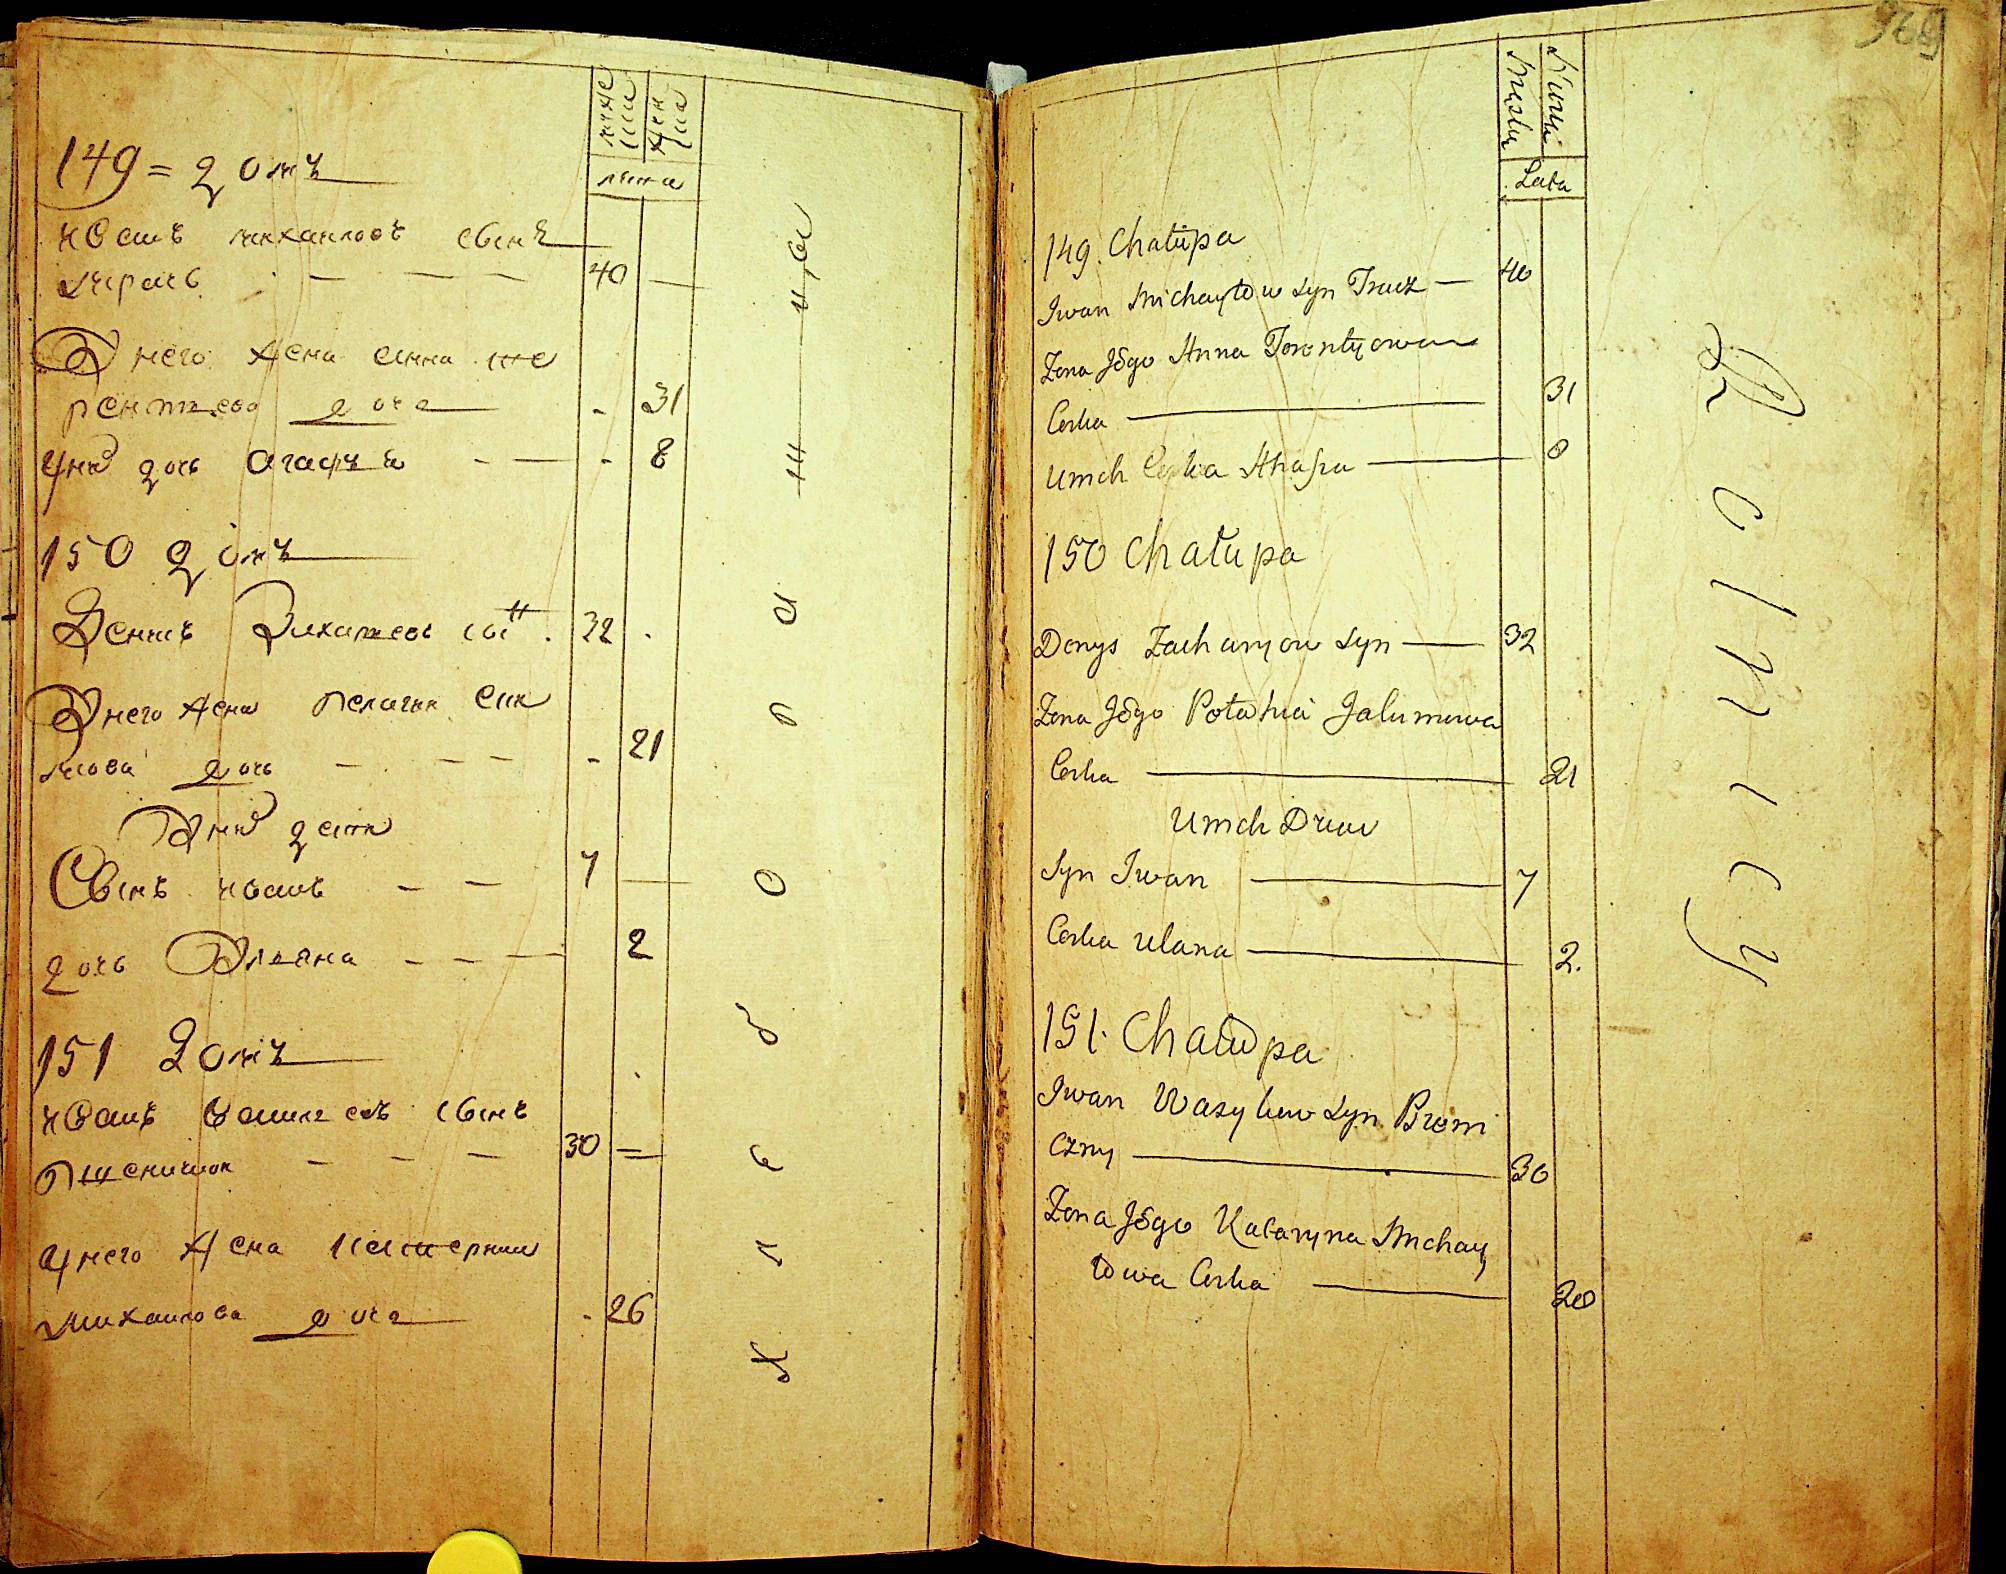 муже
ска
жен
ска
лета
149 = домъ
Иванъ михаиловъ сынъ
Ткачь 40
У него жена анна те
рентиева дочь 31
У нихъ дочь Агафия 8
150 домъ
Денисъ Захариевъ сынъ 32
У него жена пелагия еки
мова дочь 21
У нихъ дети
Сынъ иванъ 7
дочь Улияна 2
151 домъ
иванъ василевъ сынъ
Пшеничник 30
у него жена катерина
михаилова дочь 26
Хлебопашца
969
Męska
Lata
149. Chałupa
Iwan Michayłow Syn Tracz — 40
Żona Jego Anna Terentyowa
Corka — 31
Umich Corka Ahafia — 8
150 Chałupa
Denys Zacharyow Syn — 32
Żona Jego Pałahia Jakimowa
Corka — 21
Umich Dzieci
Syn Iwan — 7
Corka Ulana — 2.
151. Chałupa
Iwan Wasylew Syn Pszeni
czny — 30
Żona Jego Kataryna Michay
łowa Corka — 26
Rolnicy